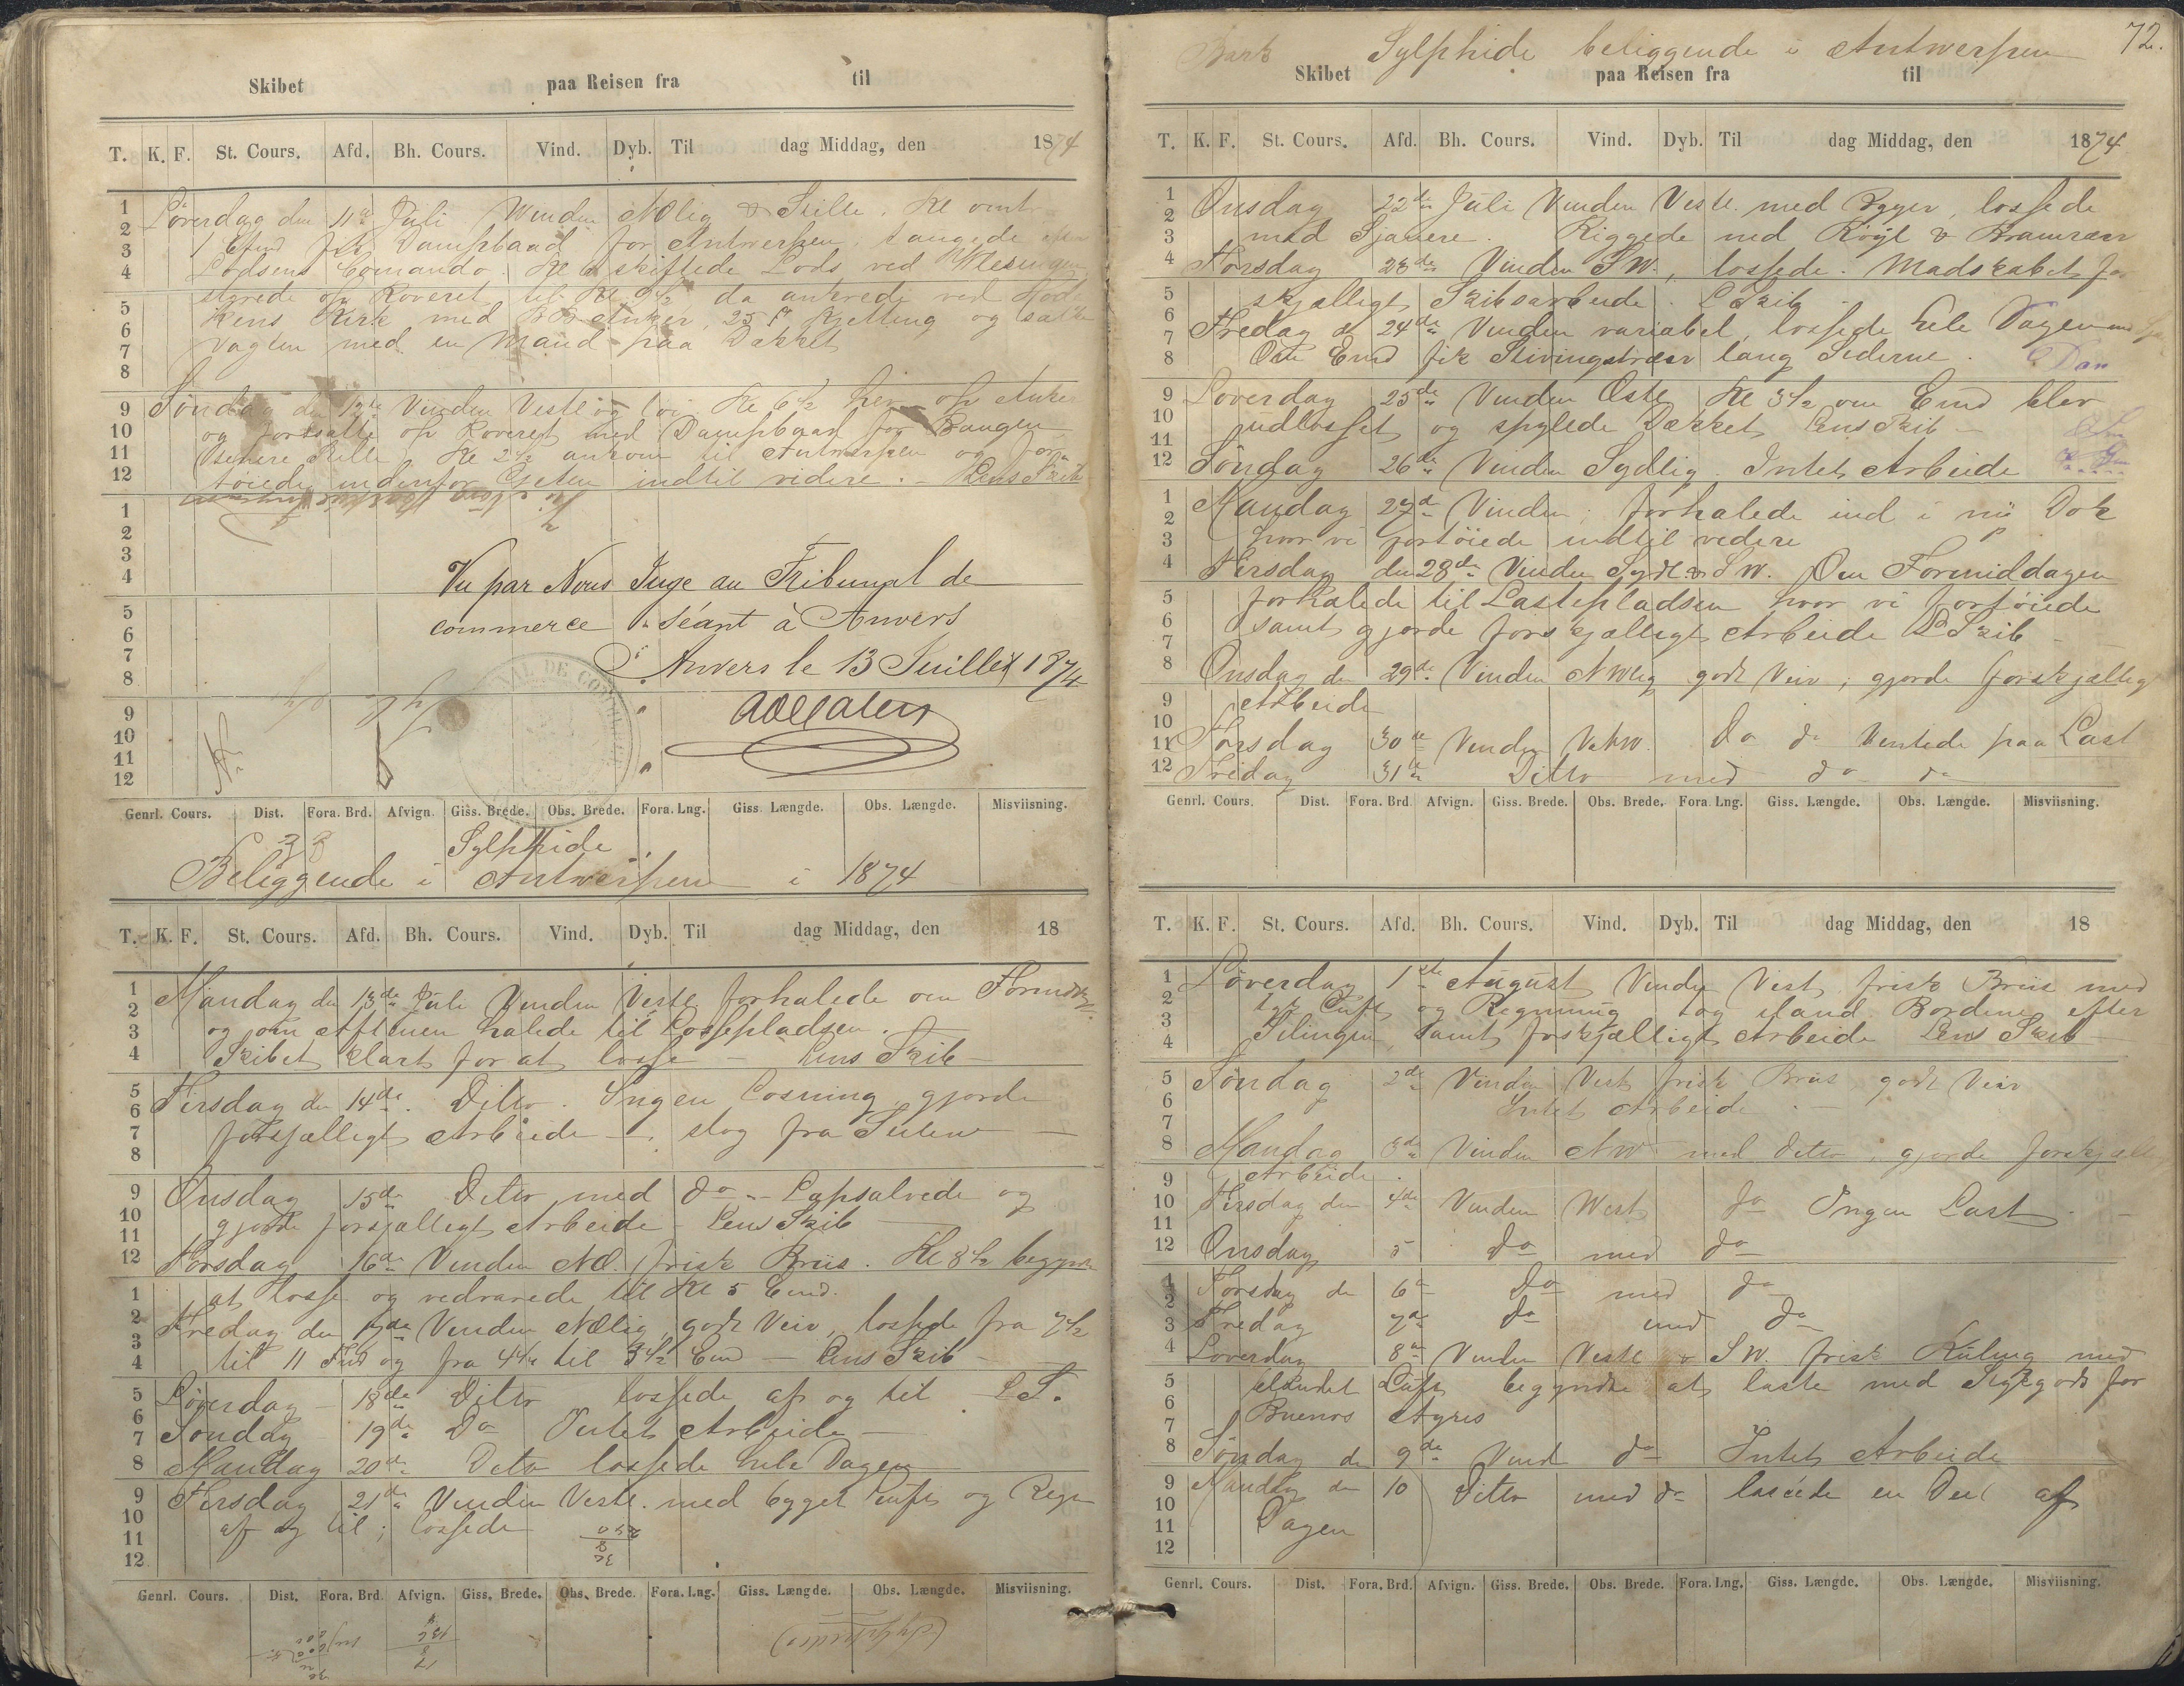 Skibet paa Reisen fra til
T. K. F. St. Cours. Afd. Bh. Cours. Vind. Dyb. Til dag Middag, den 1874
Löverdag den 11te Juli Vinden NOlig & Stille. Kl
1 Efmd fik Dampbaad for Antwerpen, efter
Lodsens Comando. Kl skiftede Lods ved Vlesingen
styrede op Reveret til Kl 9½ da ankrede ved
Kens Kirk med BB Anker, 25 f Kjetting og satte
Vagten med en Mand paa Dækket
Söndag den 12te Vinden Vestl og Kl 6½ hev op Anker
og fortsatte op Reveret med Dampbaad for Bougen
Senere Stille Kl 2½ ankom til Antwerpen og for
töiede indenfor Gjeten indtil videre. - Lens Skib
Vu par Nous Juge au Tribunal de
commerce Séant à Anvers
Anvers le 13 Juillet 1874
Genrl. Cours. Dist. Fora. Brd. Afvign. Giss. Brede. Obs. Brede. Fora. Lng. Giss. Længde. Obs. Længde. Misviisning.
Sylphide
Beliggende i Antwerpen i 1874
T. K. F. St. Cours. Afd. Bh. Cours. Vind. Dyb. Til dag Middag, den 18
Mandag den 13de Juli Vinden Vestl forhalede om Formidd.
og om Aftenen halede til Lossepladsen.
Skibet klart for at losse - Lens Skib -
Tirsdag den 14de. Ditto. Ingen Losning gjorde
forsjælligt Arbeide -, slog fra Seilene -
Onsdag 15de Ditto med do - Lapsalvede og
gjorde forsjælligt Arbeide - Lens Skib
Torsdag 16de Vinden NO. frisk Briis. Kl 8½ begynte
at losse og vedvarede til Kl 5 Emd.
Fredag den 17de Vinden NOlig, godt Veir, lossede fra 7½
til 11 Fmd og fra 4½ til 5½ Emd - Lens Skib -
Löverdag - 18de Ditto lossede af og til L S.
Söndag 19de Do Intet Arbeide -
Mandag 20de Dito lossede hele Dagen
Tirsdag 21de Vinden Vestl. med bygget Luft og Regn
af og til; lossede
Genrl. Cours. Dist. Fora. Brd. Afvign. Giss. Brede. Obs. Brede. Fora. Lng. Giss. Længde. Obs. Længde. Misviisning.
72.
Bark Sylphide beliggende i Antwerpen
Skibet paa Reisen fra til
T. K. F. St. Cours. Afd. Bh. Cours. Vind. Dyb. Til dag Middag, den 1874
Onsdag 22de Juli Vinden Vestl. med Byger, lossede
med Sjauere. Riggede ned Röyl & Bramræer
Torsdag 23de Vinden SW., lossede. Madskabet for
skjælligt Skibsarbeide. L Skib
Fredag d 24de Vinden variabel, lossede hele Dagen
Om Emd fik Stivingstræer lang Siderne.
Löverdag 25de Vinden Ostl Kl 3½ om Emd blev
udlosset og spylede Dækket Lens Skib -
Söndag 26de Vinden Sydlig Intet Arbeide
Mandag 27de Vinden; forhalede ind i nü Dok
hvor vi fortöiede indtil vedere
Tirsdag den 28de Vinden Sydl & SW. Om Formiddagen
forhalede til Lastepladsen hvor vi fortöiede
samt gjorde forskjælligt Arbeide L Skib -
Onsdag den 29de Vinden NWlig godt Veir; gjorde forskjællig
Arbeide
Torsdag 30te Vinden VNW. Do do Ventede paa Last
Fredag 31te Ditto med do do
Genrl. Cours. Dist. Fora. Brd. Afvign. Giss. Brede. Obs. Brede. Fora. Lng. Giss. Længde. Obs. Længde. Misviisning.
T. K. F. St. Cours. Afd. Bh. Cours. Vind. Dyb. Til dag Middag, den 18
Löverdag 1ste August Vinden Vest frisk Briis med
tyk Luft og Regning tog iland Bordene efter
Stilingen, samt forskjælligt Arbeide Lens Skib
Söndag 2de Vinden Vest frisk Briis godt Veir
Intet Arbeide. -
Mandag 3de Vinden NW med ditto, gjorde forskjællig
Arbeide.
Tirsdag den 4de Vinden West do Ingen Last
Onsdag 5 do med do
Torsdag de 6te Do med do
Fredag 7de do med do
Löverdag 8de Vinden Vestl & SW. frisk Kuling med
blandet Luft begyndte at laste med Stykgods for
Buenos Ayres
Söndag de 9de Vind do Intet Arbeide
Mandag de 10 Ditto med do lastede en Deel af
Dagen
Genrl. Cours. Dist. Fora. Brd. Afvign. Giss. Brede. Obs. Brede. Fora. Lng. Giss. Længde. Obs. Længde. Misviisning.